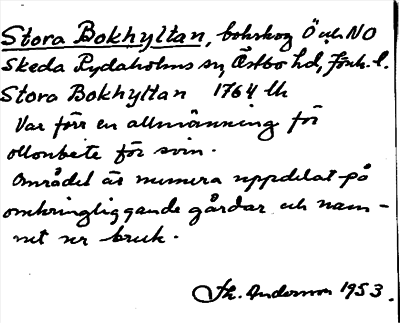 Stora Bokhyltan, bokskog Ö och NO
Skeda Rydaholms sn, Östbo hd, Jönk. l.
Stora Bokhyltan 1764 lh
Var förr en allmänning för
ollonbete för svin.
Området är numera uppdelat på
omkringliggande gårdar och nam-
net ur bruk.
Th. Andersson 1953.